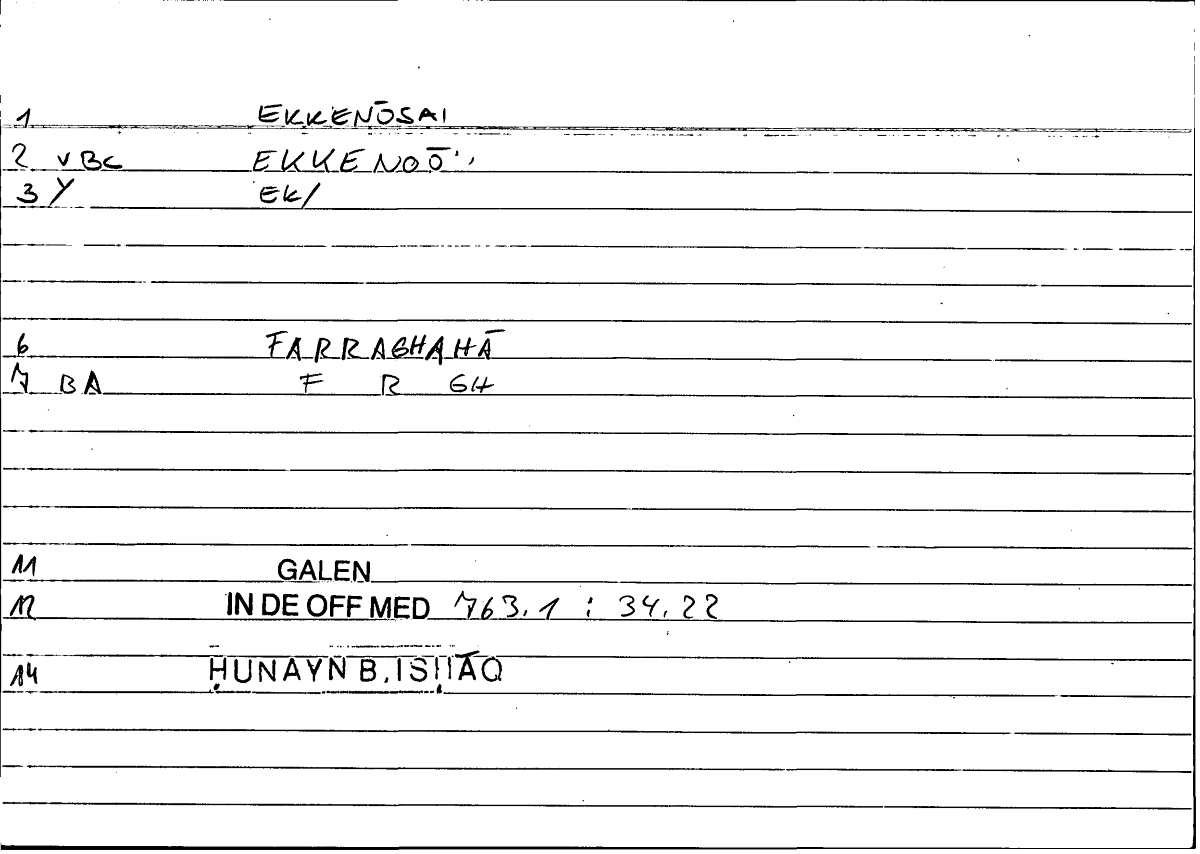 1 EKKENŌSAI
2 VBC EKKENOŌ''
3 Y EK/
6 FARRAGHAHĀ
7 BA F R GH
11 GALEN
12 IN DE OFF MED 763.1 : 34.22
14 ḤUNAYN B. ISḤĀQ